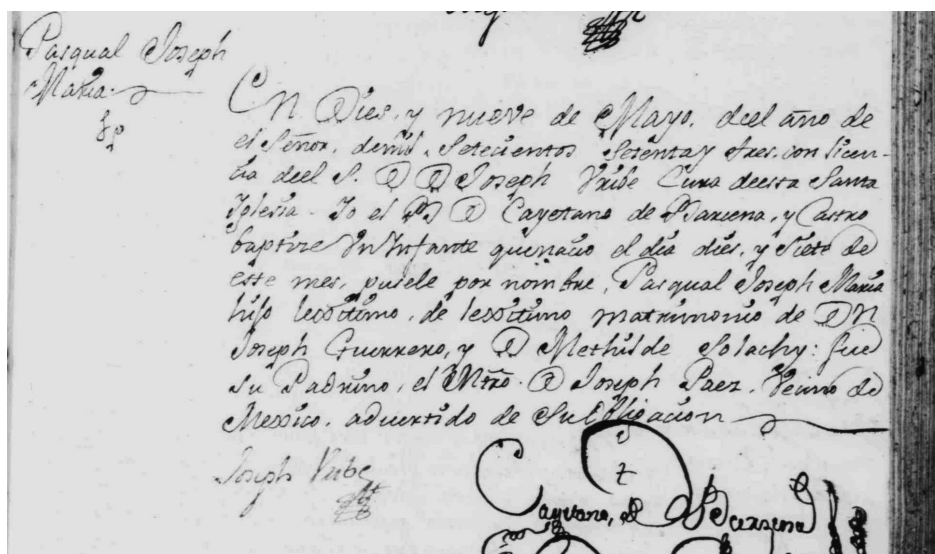 Pasqual Joseph
Maria.
En Dies, y nueve de Mayo, deel año de
el Señor, demil, Setecientos Setentay tres, con licen-
cia deel S. D D Joseph Vribe Cura deesta Santa
Iglesia. Yo el B D Cayetano de Barcena, y Castro
baptize Vn Infante quenacio el dia dies, y Siete de
este mes, pusele por nombre, Pasqual Joseph Maria
hijo lexitimo, de lexitimo matrimonio de Dn
Joseph Guerrero, y D Methilde Solachy: fue
su Padrino, el Mtro. D Joseph Paez. Vecino de
Mexico, aduertido de Su Obligacion
Joseph Vribe
Cayetano, de Barzena